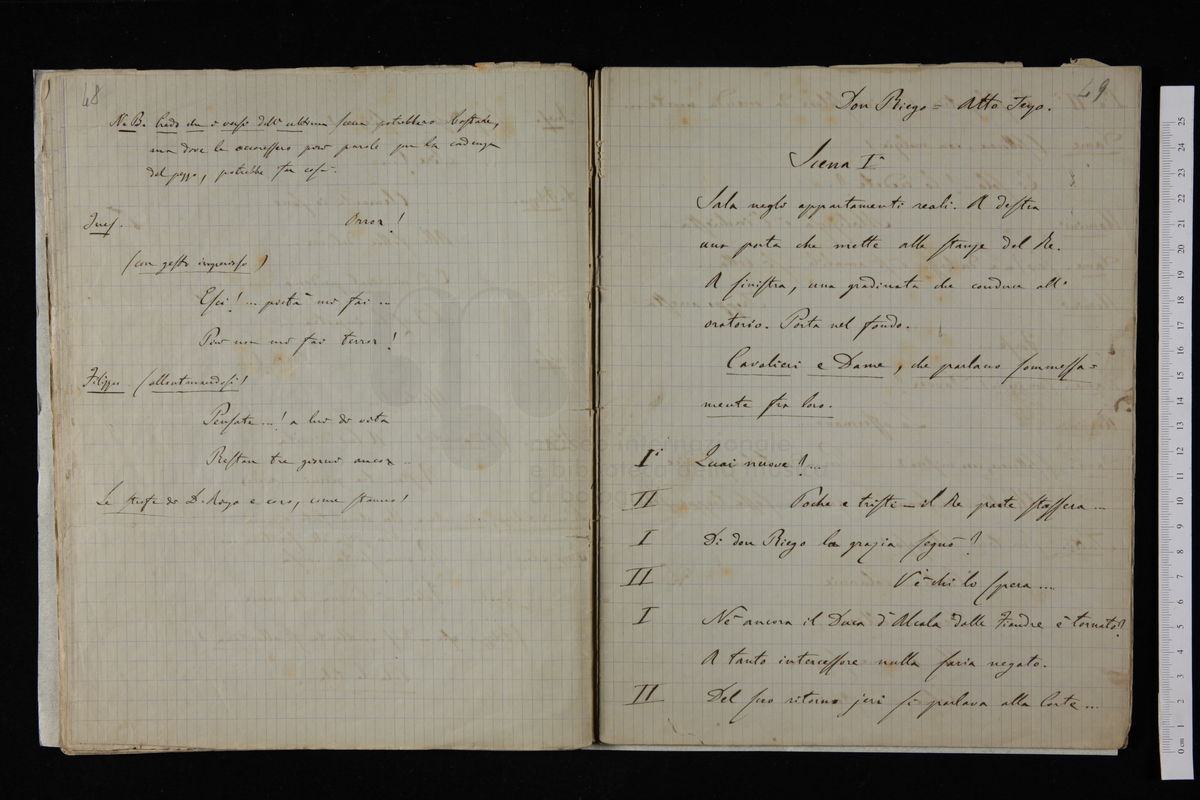 48
N.B. Credo che i versi dell'ultima scena potrebbero bastare,
ma dove le occoressero poche parole per la cadenza
del pezzo, potrebbe far così.
Ines. Orror!
(con gesto imperioso)
Esci! ... pietà mi fai ...
Più non mi fai terror!
Filippo (allontanandosi)
Pensate ...! a lui di vita
Restan tre giorni ancor ...
Le strofe di D. Riego e coro, come stanno!
49
Don Riego = Atto Terzo.
Scena Iª
Sala negli appartamenti reali. A destra
una porta che mette alle stanze del Re.
A sinistra, una gradinata che conduce all'
oratorio. Porta nel fondo.
Cavalieri e Dame, che parlano sommessa=
mente fra loro.
Iⁱ Quai nuove? ...
II Poche e tristi – il Re parte stassera ...
I Di don Riego la grazia segnò?
II V'è chi lo spera ...
I Nè ancora il Duca d'Alcala dalle Fiandre è tornato?
A tanto intercessore nulla saria negato.
II Del suo ritorno jeri si parlava alla Corte ...
0 cm 1 2 3 4 5 6 7 8 9 10 11 12 13 14 15 16 17 18 19 20 21 22 23 24 25